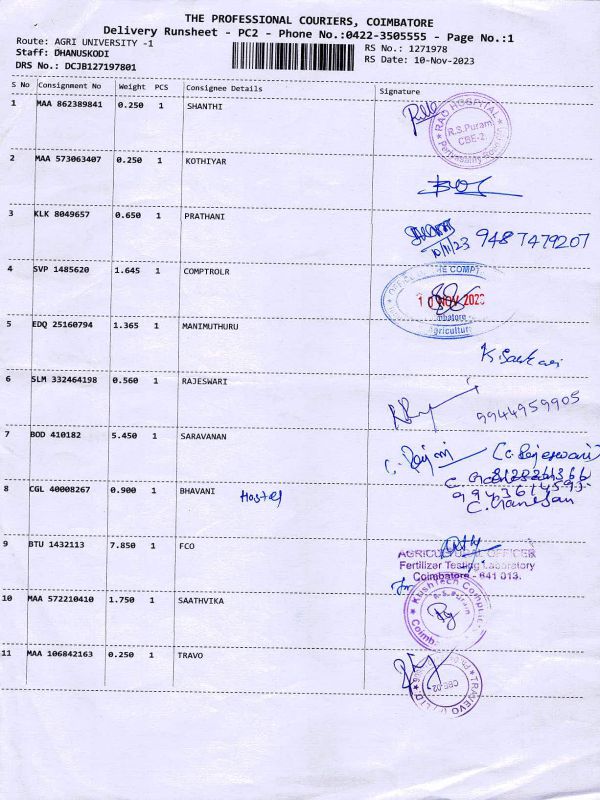 THE PROFESSIONAL COURIERS, COIMBATORE
Delivery Runsheet - PC2 - Phone No.:0422-3505555 - Page No.:1
Route: AGRI UNIVERSITY -1
RS No.: 1271978
Staff: DHANUSKODI
RS Date: 10-Nov-2023
DRS No.: DCJB127197801
S No Consignment No Weight PCS Consignee Details Signature
1 MAA 862389841 0.250 1 SHANTHI
RAO HOSPITAL
R.S.Puram
CBE-2.
2 MAA 573063407 0.250 1 KOTHIYAR
3 KLK 8049657 0.650 1 PRATHANI
10/11/23 9487479207
4 SVP 1485620 1.645 1 COMPTROLR
THE COMPT
10 NOV 2023
Agricultur
5 EDQ 25160794 1.365 1 MANIMUTHURU
6 SLM 332464198 0.560 1 RAJESWARI
9944959905
7 BOD 410182 5.450 1 SARAVANAN
(C. Rajeswari)
8 CGL 40008267 0.900 1 BHAVANI Hostel
C. Ganesan
9 BTU 1432113 7.850 1 FCO
AGRICULTURAL OFFICER
Fertilizer Testing Laboratory
Coimbatore - 641 013.
10 MAA 572210410 1.750 1 SAATHVIKA
11 MAA 106842163 0.250 1 TRAVO
CBE-02